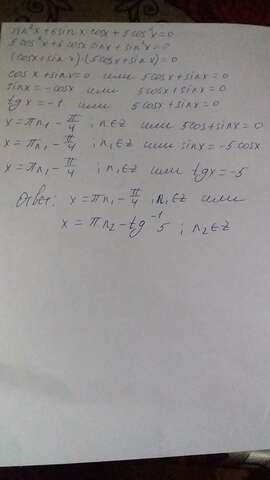 sin²x+6sinx cosx+5cos²x=0
5cos²x+6cosx sinx+sin²x=0
(cosx+sinx)·(5cosx+sinx)=0
cosx+sinx=0 или 5cosx+sinx=0
sinx=-cosx или 5cosx+sinx=0
tgx=-1 или 5cosx+sinx=0
x=πn₁-π/4 ; n∈z или 5cos+sinx=0
x=πn₁-π/4 ; n₁∈z или sinx=-5cosx
x=πn₁-π/4 ; n₁∈z или tgx=-5
Ответ: x=πn₁-π/4 ; n₁∈z или
x=πn₂-tg⁻¹5 ; n₂∈z